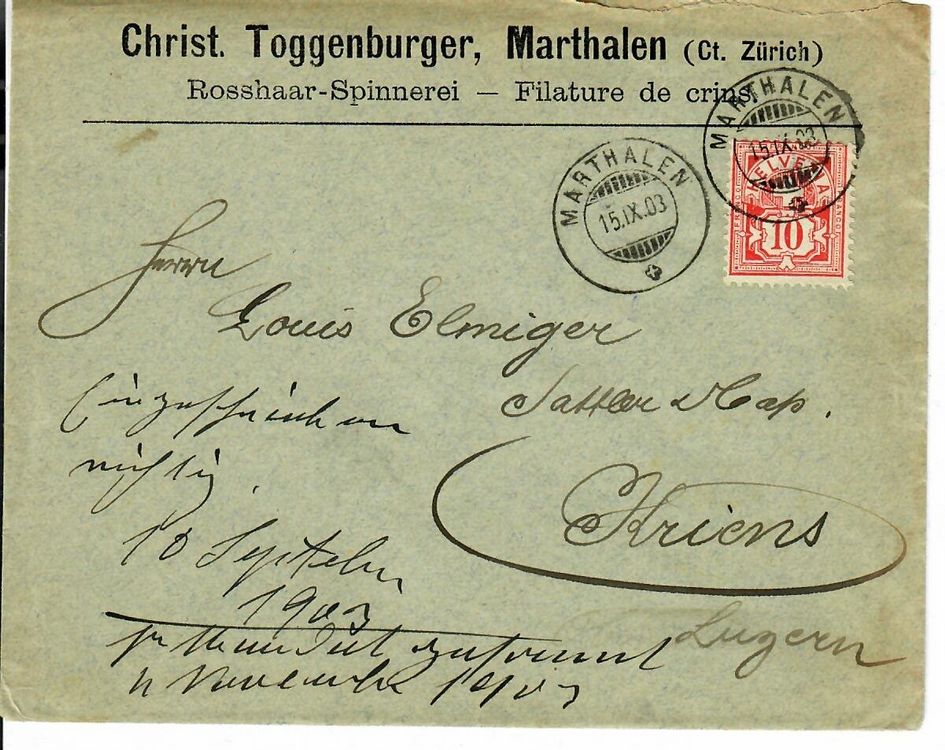 Christ. Toggenburger, Marthalen (Ct. Zürich)
Rosshaar-Spinnerei — Filature de crins.
MARTHALEN
15.IX.03
MARTHALEN
15.IX.03
HELVETIA
FRANCO
10
Herrn
Louis Elmiger
Sattler & Tap.
Kriens
Luzern
Eingeschrieben
richtig.
10 September
1903
per Mandat
4 November 1903